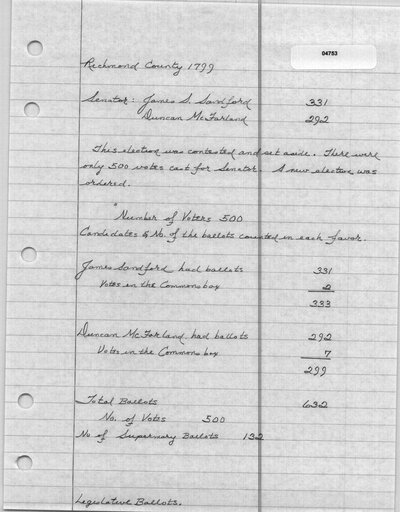 04753
Richmond County 1799
Senator: James S. Sandford 331
Duncan McFarland 292
This election was contested and set aside. There were
only 500 votes cast for Senator. A new election was
ordered.
"Number of Voters 500
Candidates & No. of the ballots counted in each favor.
James Sandford had ballots 331
Votes in the Commons box 2
333
Duncan McFarland had ballots 292
Votes in the Commons box 7
299
Total Ballots 632
No. of Votes 500
No of Supernury Ballots 132
Legislative Ballots.